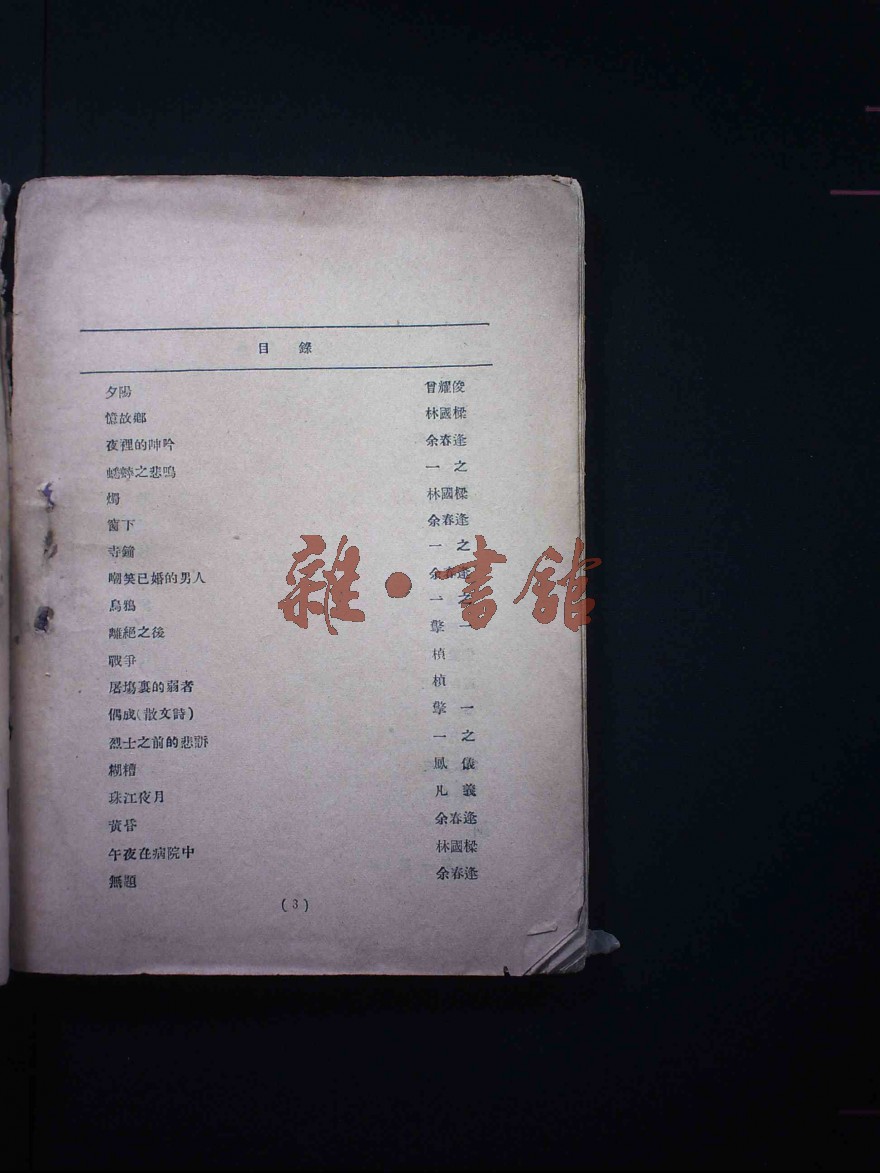 目錄
夕陽 曾耀俊
憶故鄉 林國樑
夜裡的呻吟 余春逢
蟋蟀之悲鳴 一之
燭 林國樑
窗下 余春逢
寺鐘 一之
嘲笑已婚的男人 余春逢
烏鴉 一之
離絕之後 擎一
戰爭 楨
屠塲裏的弱者 楨
偶成(散文詩) 擎一
烈士之前的悲訴 一之
糊糟 鳳儀
珠江夜月 凡義
黃昏 余春逢
午夜在病院中 林國樑
無題 余春逢
(3)
雜·書館